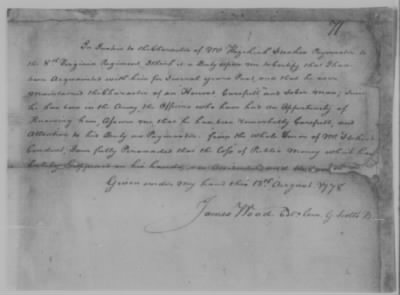 71
In Justice to the Character of Mr Hezekiah Paymaster to
the 8th Virginia Regiment, I think it a Duty upon me to Certify that I have
been Acquainted with him for Several years Past, and that he ever
maintained the Character of an Honest Carefull and Sober Man; Since
he has been in the Army, the Officers who have had an Opportunity of
Knowing him, Assure me, that he has been Remarkably Carefull, and
Attentive to his Duty as Paymaster. from the Whole Tenor of Mr
Conduct, I am fully Persuaded that the Loss of Public Money which has
happened in his hands, was
Given under my hand this 13th August 1778
James Wood